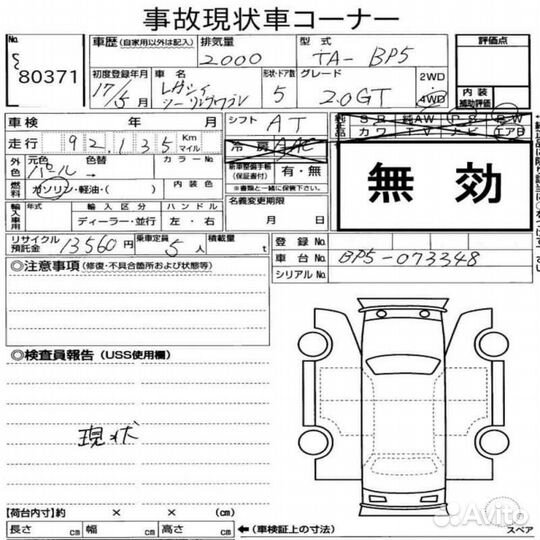 事故現状車コーナー
No. 80371
車歴 (自家用以外は記入) 排気量 2000 型式 TA-BP5 評価点
初度登録年月 17/5月 車名 レガシィ ツーリングワゴン 形状・ドア数 5 グレード 2.0GT 2WD 4WD 内装 補助評価
車検 年 月 シフト AT 純正品 SR 純AW PS PW
走行 92,135 Km マイル 冷房 AAC カワ TV ナビ エアB
外色 元色 パール 色替 → カラーNo. 新車整備手帳 (保証書付) 有・無 無効
燃料 ガソリン・軽油・( ) 内装色 ※書類と一緒に保管して下さい。
輸入車用 年式 輸入区分 ディーラー・並行 ハンドル 左・右 名義変更期限 月 日
リサイクル預託金 13560円 乗車定員 5人 積載量 t 登録No.
車台No. BP5-073348
シリアルNo.
◎注意事項 (修復・不具合箇所および状態等)
◎検査員報告 (USS使用欄)
現状
【荷台内寸】約 × × (cm)
長さ cm 幅 cm 高さ cm ←(車検証上の寸法)
スペア
Avito